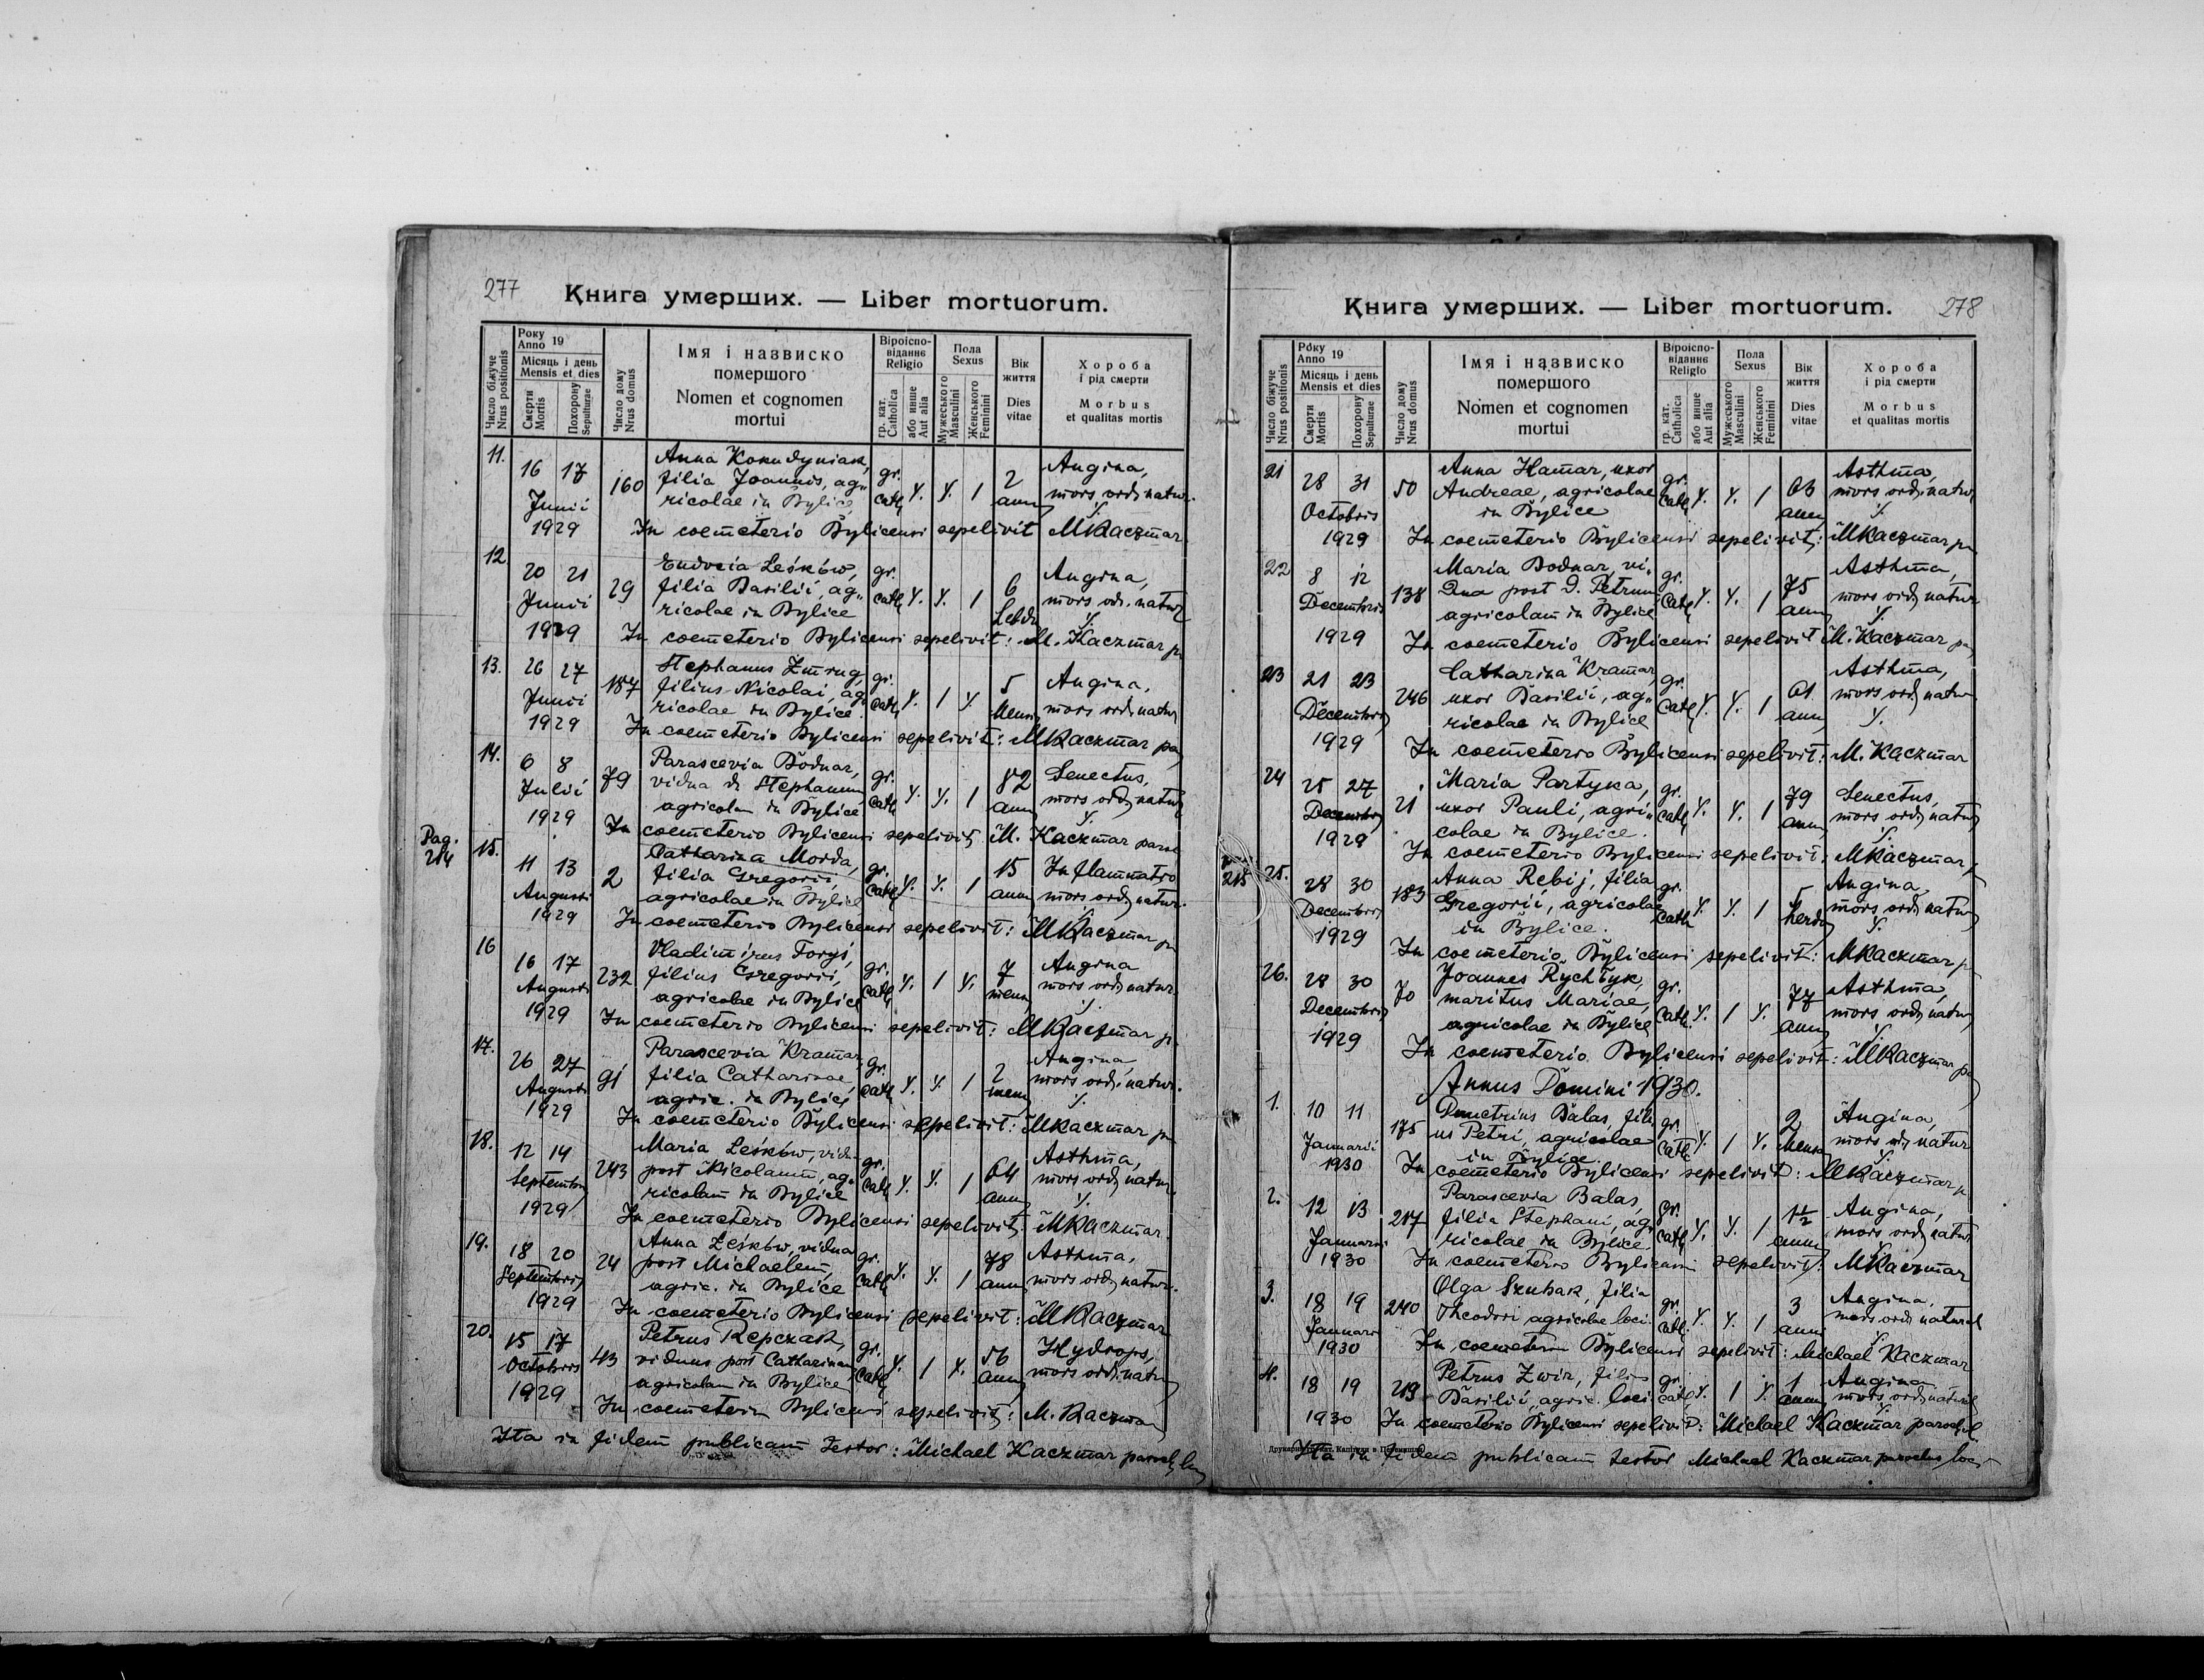 277
Книга умерших. — Liber mortuorum.
Число біжуче
Nrus positionis
Року
Anno 19
Місяць і день
Mensis et dies
Смерти
Mortis
Похорону
Sepulturae
Число дому
Nrus domus
Імя і назвиско
помершого
Nomen et cognomen
mortui
Віроіспо-
віданнє
Religio
гр. кат.
Catholica
або инше
Aut alia
Пола
Sexus
Мужеського
Masculini
Женського
Feminini
Вік
життя
Dies
vitae
Хороба
і рід смерти
Morbus
et qualitas mortis
11.
16 17
Junii
1929
160
Anna Kokudyniak,
filia Joannis, ag„
ricolae in Bylice
gr.
cath
1
2
ann
Angina,
mors ord. natur.
In coemeterio Bylicensi sepelivit MKaczmar
12
20 21
Junii
1929
29
Eudocia Leśków,
filia Basilii, ag„
ricolae in Bylice
gr.
cath
1
6
Angina,
mors ord. natur
In coemeterio Bylicensi sepelivit: M. Kaczmar
13.
26 27
Junii
1929
187
Stephanus Zmrug,
filius Nicolai, ag„
ricolae in Bylice.
gr.
cath
1
5
Mens
Angina,
mors ord. natur
In coemeterio Bylicensi sepelivit: MKaczmar
14.
6 8
Julii
1929
79
Parascevia Bodnar,
vidua d. Stephanum
agricolam in Bylice
gr.
cath
1
82
ann
Senectus,
mors ord. natur
In coemeterio Bylicensi sepelivit M. Kaczmar
Pag.
214
15.
11 13
Augusti
1929
2
Catharina Morda,
filia Gregorii,
agricolae in Bylice
gr.
cath
1
15
ann
Inflammatio
mors ord. natur.
In coemeterio Bylicensi sepelivit: MKaczmar
16
16 17
Augusti
1929
232
Vladimirus Foryś,
filius Gregorii,
agricolae in Bylice
gr.
cath
1
7
mens
Angina
mors ord. natur.
In coemeterio Bylicensi sepelivit: MKaczmar
17.
26 27
Augusti
1929
91
Parascevia Kramar,
filia Catharinae,
agric. in Bylice
gr.
cath
1
2
mens
Angina,
mors ord. natur.
In coemeterio Bylicensi sepelivit: MKaczmar
18.
12 14
Septembris
1929
243
Maria Leśków, vidu
post Nicolaum, ag„
ricolam in Bylice
gr.
cath
1
64
ann
Asthma,
mors ord. natur.
In coemeterio Bylicensi sepelivit: MKaczmar.
19.
18 20
Septembris
1929
24
Anna Leśków, vidua
post Michaelem,
agric. in Bylice
gr.
cath
1
78
ann
Asthma,
mors ord. natur.
In coemeterio Bylicensi sepelivit: MKaczmar
20.
15 17
Octobris
1929
43
Petrus Repczak,
viduus post Catharinam
agricolam in Bylice
gr.
cath
1
56
ann
Hydrops,
mors ord. natur
In coemeterio Bylicensi sepelivit: M. Kaczmar
Ita in fidem publicam testor: Michael Kaczmar paroch
278
Книга умерших. — Liber mortuorum.
Число біжуче
Nrus positionis
Року
Anno 19
Місяць і день
Mensis et dies
Смерти
Mortis
Похорону
Sepulturae
Число дому
Nrus domus
Імя і назвиско
помершого
Nomen et cognomen
mortui
Віроіспо-
віданнє
Religio
гр. кат.
Catholica
або инше
Aut alia
Пола
Sexus
Мужеського
Masculini
Женського
Feminini
Вік
життя
Dies
vitae
Хороба
і рід смерти
Morbus
et qualitas mortis
21
28 31
Octobris
1929
50
Anna Hamar, uxor
Andreae, agricolae
in Bylice
gr.
cath
1
ann
Asthma,
mors ord. natur
In coemeterio Bylicensi sepelivit: MKaczmar
22
8 12
Decembris
1929
138
Maria Bodnar, vi„
dua post d. Petrum
agricolam in Bylice
gr.
cath
1
75
ann
Asthma,
mors ord. natur
In coemeterio Bylicensi sepelivit M. Kaczmar
23
21 23
Decembris
1929
246
Catharina Kramar,
uxor Basilii, ag„
ricolae in Bylice
gr.
cath
1
61
ann
Asthma,
mors ord. natur
In coemeterio Bylicensi sepelivit: M. Kaczmar
24
25 27
Decembris
1929
21
Maria Partyka,
uxor Pauli, agri„
colae in Bylice.
gr.
cath
1
79
ann
Senectus,
mors ord. natur
In coemeterio Bylicensi sepelivit: MKaczmar
215
25.
28 30
Decembris
1929
183
Anna Rebij, filia
Gregorii, agricolae
in Bylice.
gr.
cath
1
5
Angina,
mors ord. natur
In coemeterio Bylicensi sepelivit: MKaczmar
26.
28 30
Decembris
1929
70
Joannes Rychłyk,
maritus Mariae,
agricolae in Bylice
gr.
cath
1
77
ann
Asthma,
mors ord. natur
In coemeterio Bylicensi sepelivit: MKaczmar
Annus Domini 1930.
1.
10 11
Januarii
1930
175
Demetrius Balas, fili„
us Petri, agricolae
in Bylice.
gr.
cath
1
2
Mens
Angina,
mors ord. natur
In coemeterio Bylicensi sepelivit: MKaczmar
2.
12 13
Januarii
1930
217
Parascevia Balas,
filia Stephani, ag„
ricolae in Bylice.
gr.
cath
1
1½
ann
Angina,
mors ord. natur
In coemeterio Bylicensi sepelivit: MKaczmar
3.
18 19
Januarii
1930
240
Olga Szubak, filia
Theodori agricolae loci.
gr.
cath
1
3
anni
Angina,
mors ord. natural
In coemeterio Bylicensi sepelivit: Michael Kaczmar
4.
18 19
1930
219
Petrus Zwir, filius
Basilii, agric. loci
gr.
cath
1
1
anni
Angina
mors ord. natural
In coemeterio Bylicensi sepelivit: Michael Kaczmar paroch
Ita in fidem publicam testor Michael Kaczmar parochus loci